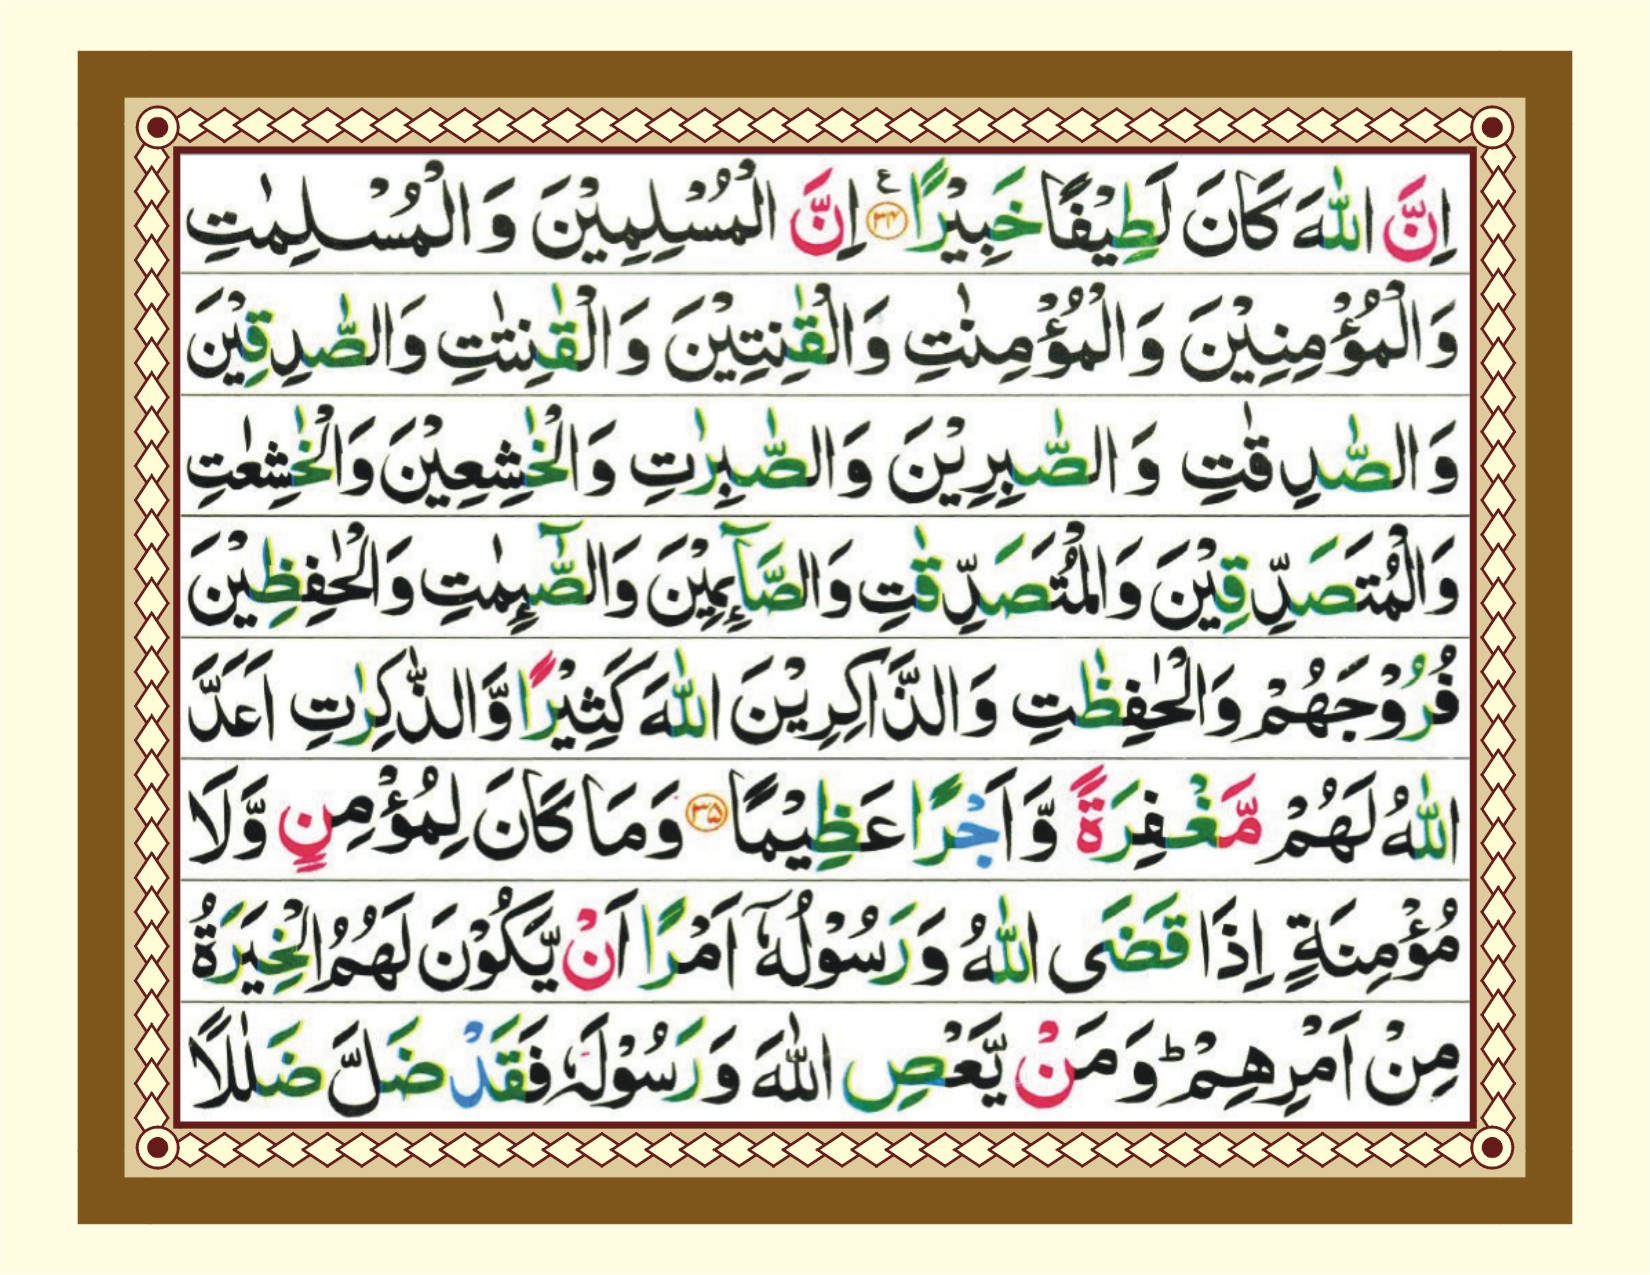 اِنَّ اللّٰهَ كَانَ لَطِيْفًا خَبِيْرًا ۧ﴿۳۴﴾ اِنَّ الْمُسْلِمِيْنَ وَ الْمُسْلِمٰتِ
وَ الْمُؤْمِنِيْنَ وَ الْمُؤْمِنٰتِ وَ الْقٰنِتِيْنَ وَ الْقٰنِتٰتِ وَ الصّٰدِقِيْنَ
وَ الصّٰدِقٰتِ وَ الصّٰبِرِيْنَ وَ الصّٰبِرٰتِ وَ الْخٰشِعِيْنَ وَ الْخٰشِعٰتِ
وَ الْمُتَصَدِّقِيْنَ وَ الْمُتَصَدِّقٰتِ وَ الصَّآىِٕمِيْنَ وَ الصّٰٓىِٕمٰتِ وَ الْحٰفِظِيْنَ
فُرُوْجَهُمْ وَ الْحٰفِظٰتِ وَ الذَّاكِرِيْنَ اللّٰهَ كَثِيْرًا وَّ الذّٰكِرٰتِ اَعَدَّ
اللّٰهُ لَهُمْ مَّغْفِرَةً وَّ اَجْرًا عَظِيْمًا ﴿۳۵﴾ وَ مَا كَانَ لِمُؤْمِنٍ وَّ لَا
مُؤْمِنَةٍ اِذَا قَضَى اللّٰهُ وَ رَسُوْلُهٗۤ اَمْرًا اَنْ يَّكُوْنَ لَهُمُ الْخِيَرَةُ
مِنْ اَمْرِهِمْ ؕ وَ مَنْ يَّعْصِ اللّٰهَ وَ رَسُوْلَهٗ فَقَدْ ضَلَّ ضَلٰلًا